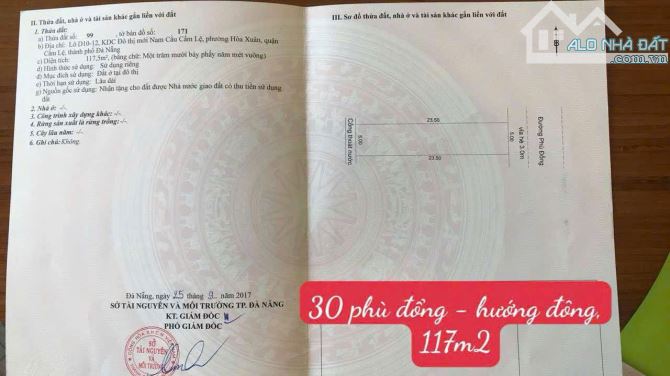 II. Thửa đất, nhà ở và tài sản khác gắn liền với đất
1. Thửa đất:
a) Thửa đất số: 99 , tờ bản đồ số: 171
b) Địa chỉ: Lô D10-12, KDC Đô thị mới Nam Cầu Cẩm Lệ, phường Hòa Xuân, quận
Cẩm Lệ, thành phố Đà Nẵng
c) Diện tích: 117.5m², (bằng chữ: Một trăm mười bảy phẩy năm mét vuông)
d) Hình thức sử dụng: Sử dụng riêng
đ) Mục đích sử dụng: Đất ở tại đô thị
e) Thời hạn sử dụng: Lâu dài
g) Nguồn gốc sử dụng: Nhận tặng cho đất được Nhà nước giao đất có thu tiền sử dụng
đất
2. Nhà ở: -/-
3. Công trình xây dựng khác: -/-
4. Rừng sản xuất là rừng trồng: -/-
5. Cây lâu năm: -/-
6. Ghi chú: Không.
Đà Nẵng, ngày 25 tháng 9 năm 2017
SỞ TÀI NGUYÊN VÀ MÔI TRƯỜNG TP. ĐÀ NẴNG
KT. GIÁM ĐỐC
PHÓ GIÁM ĐỐC
SỞ
TÀI NGUYÊN
VÀ
MÔI TRƯỜNG
III. Sơ đồ thửa đất, nhà ở và tài sản khác gắn liền với đất
ALO NHÀ ĐẤT
B
Cống thoát nước
5.00
23.50
23.50
5.00
vỉa hè 3.0m
Đường Phù Đổng
30 phù đổng - hướng đông,
117m2